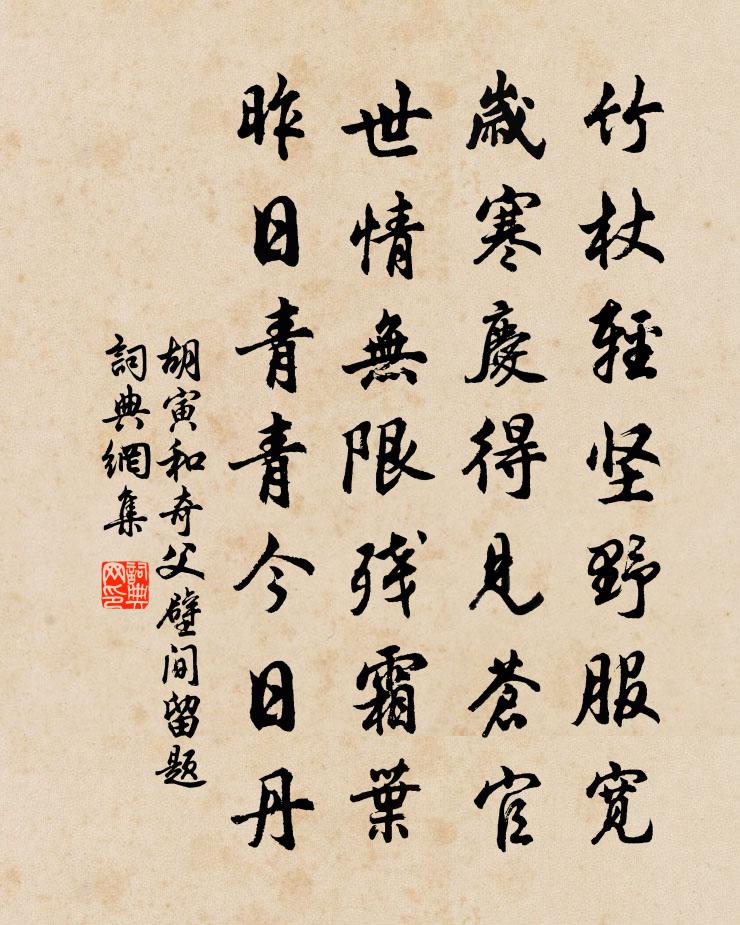 竹杖輕坚野服寬
歲寒慶得見蒼官
世情無限残霜葉
昨日青青今日丹
胡寅和奇父壁间留题
詞典網集
詞典网印